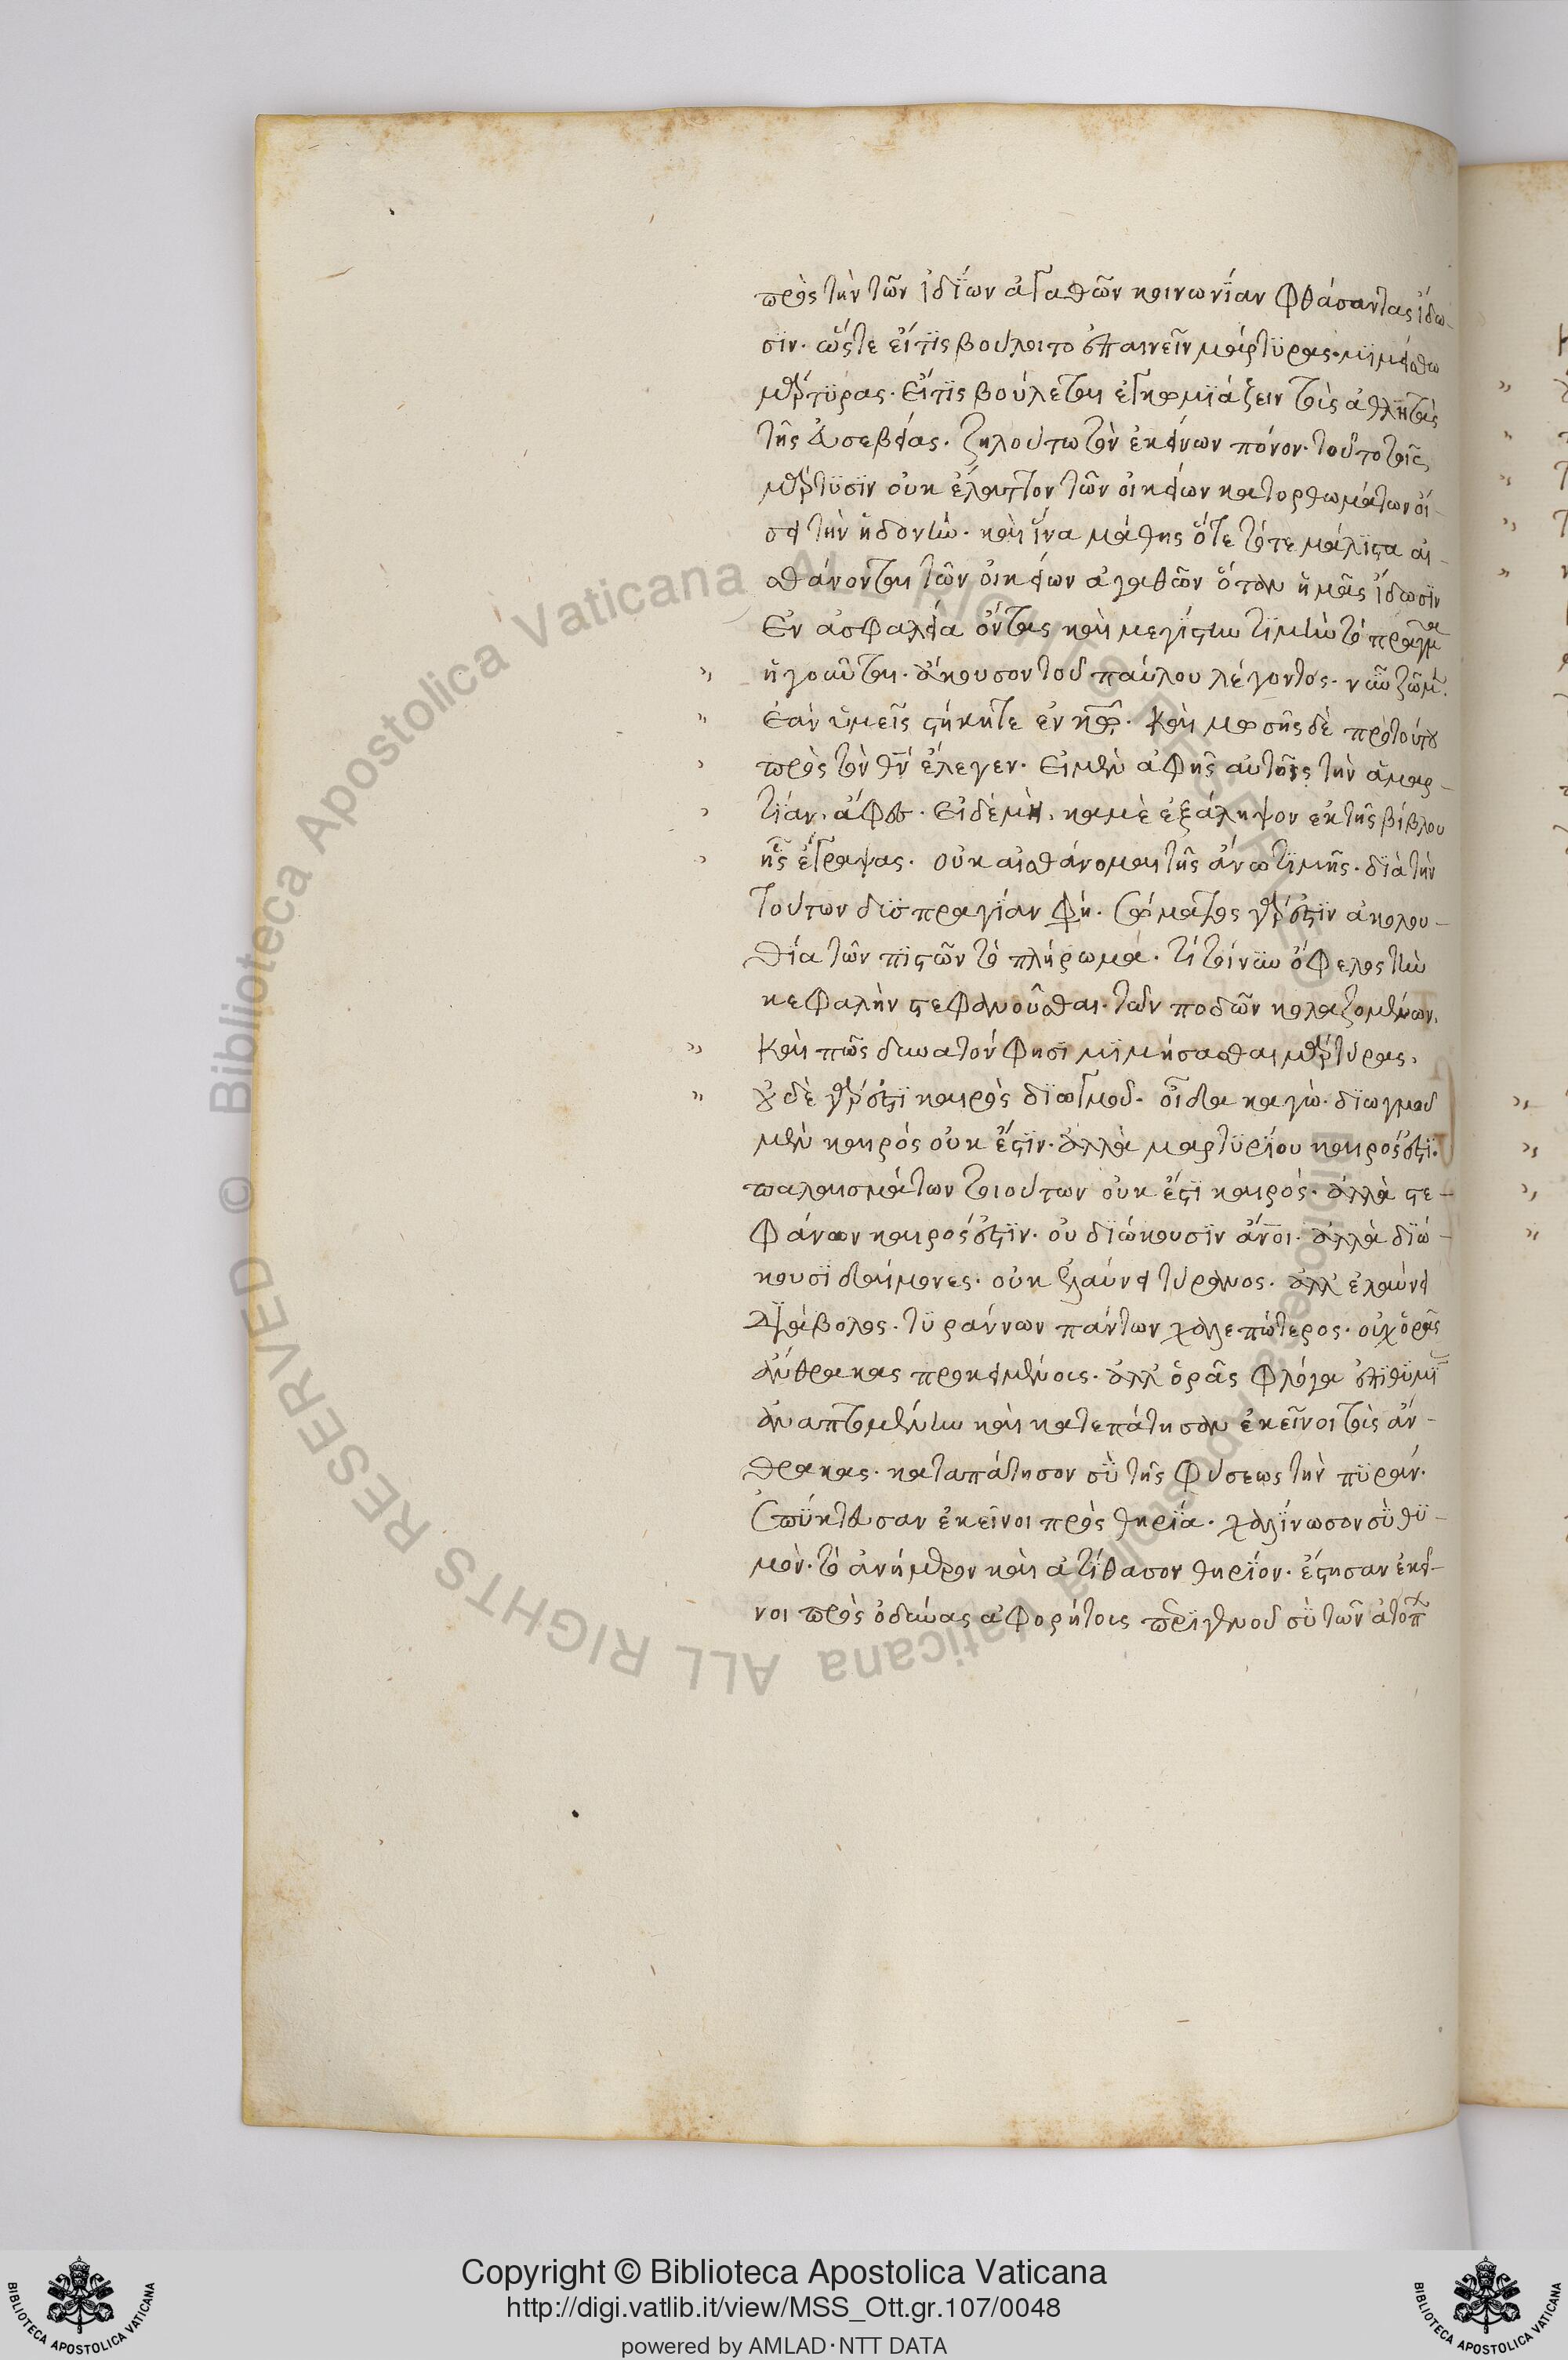 πρὸς τὴν τῶν ἰδίων ἀγαθῶν κοινωνίαν φθάσαντας ἴδω-
σιν. ὥστε εἴ τις βούλοιτο ἐπαινεῖν μάρτυρας. μιμείσθω
μάρτυρας. εἴ τις βούλεται ἐγκωμιάζειν τοὺς ἀθλητὰς
τῆς εὐσεβείας. ζηλούτω τὸν ἐκείνων πόνον. τοῦτο τοῖς
μάρτυσιν οὐκ ἔλαττον τῶν οἰκείων κατορθωμάτων οἴ-
σει τὴν ἡδονήν. καὶ ἵνα μάθης ὅτε τότε μάλιστα αἰ-
σθάνονται τῶν οἰκείων ἀγαθῶν ὅταν ἡμᾶς ἴδωσιν
ἐν ἀσφαλεία ὄντας καὶ μεγίστην τιμὴν τὸ πρᾶγμα
ἡγοῦνται. ἄκουσον τοῦ παύλου λέγοντος. νῦν ζῶμ.
ἐὰν ὑμεῖς στήκητε ἐν κω. καὶ μωσῆς δὲ πρὸ τούτου
πρὸς τὸν θν ἔλεγεν. εἰ μὲν ἀφῆς αὐτοῖς τὴν ἁμαρ-
τίαν, ἄφες. εἰ δὲ μὴ, καμὲ ἐξάλειψον ἐκ τῆς βίβλου
ἧς ἔγραψας. οὐκ αἰσθάνομαι τῆς ἄνω τιμῆς. διὰ τὴν
τούτων δυσπραγίαν φη. σώματος γάρ ἐστιν ἀκολου-
θία τῶν πιστῶν τὸ πλήρωμα. τί τοίνυν ὄφελος τὴν
κεφαλὴν στεφανοῦσθαι. τῶν ποδῶν κολαζομένων.
καὶ πῶς δυνατόν φησι μιμήσασθαι μάρτυρας.
οὐδὲ γάρ ἐστι καιρὸς διωγμοῦ. οἶδα καγώ. διωγμοῦ
μὲν καιρός οὐκ ἔστιν. ἀλλὰ μαρτυρίου καιρός ἐστι.
παλαισμάτων τοιούτων οὐκ ἔστι καιρός. ἀλλὰ στε-
φάνων καιρός ἐστιν. οὐ διώκουσιν ἄνοι. ἀλλὰ διώ-
κουσι δαίμονες. οὐκ ἐλαύνει τύραννος. ἀλλ' ἐλαύνει
διάβολος. τυράννων πάντων χαλεπώτερος. οὐχ ὁρᾶς
ἄνθρακας προκειμένους. ἀλλ' ὁρᾶς φλόγα ἐπιθυμι
ἀναπτομένην καὶ κατεπάτησαν ἐκεῖνοι τοὺς ἄν-
θρακας. καταπάτησον σὺ τῆς φύσεως τὴν πυράν.
ἐπύκτευσαν ἐκεῖνοι πρὸς θηρία. χαλίνωσον σὺ θυ-
μὸν. τὸ ἀνήμερον καὶ ἀτίθασον θηρίον. ἔστησαν ἐκεῖ-
νοι πρὸς ὀδύνας ἀφορήτους περιγενοῦ σὺ τῶν ἀτόπ
© Biblioteca Apostolica Vaticana ALL RIGHTS RESERVED
Copyright © Biblioteca Apostolica Vaticana
http://digi.vatlib.it/view/MSS_Ott.gr.107/0048
powered by AMLAD·NTT DATA
BIBLIOTECA APOSTOLICA VATICANA
BIBLIOTECA APOSTOLICA VATICANA